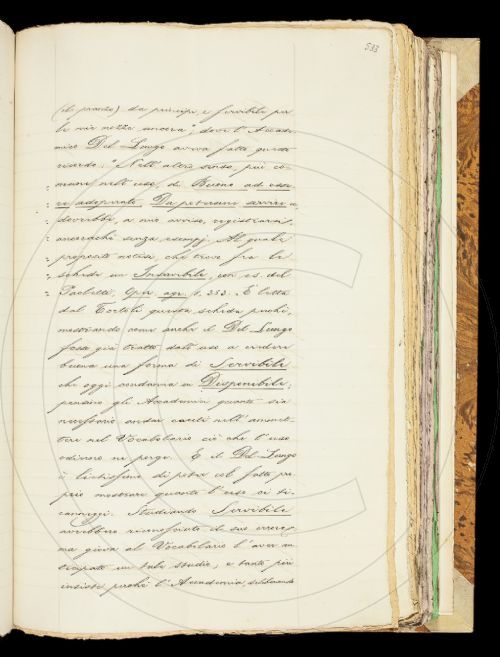 533
(il pranzo) da principi, e servibile per
le mie nozze ancora", dove l'Accade-
mico Del-Lungo aveva fatto questo
ricordo: "Nell'altro senso, più co-
" mune nell'uso, di Buono ad esse-
" re adoperato, Da potersene servire e,
" dovrebbe, a mio avviso, registrarsi,
" ancorachè senza esempj. Al quale
" proposito notisi, che trovo fra le
" schede un Inservibile, con es. del
" Paoletti, Oper. agr. 1. 353. È letta
dal Tortoli questa scheda perchè,
mostrando come anche il Del-Lungo
fosse già tratto dall'uso a creder
buona una forma di Servibile
che oggi condanna in Disponibile,
pensino gli Accademici quanto sia
necessario andar cauti nell'ammet-
tere nel Vocabolario ciò che l'uso
odierno ne porge. E il Del-Lungo
è lietissimo di poter col fatto pro-
prio mostrare quanto l'uso ci ti-
canneggi. Studiando Servibile
avrebbe riconosciuto il suo errore,
ma giova al Vocabolario l'aver an-
ticipato un tale studio; e tanto più
insiste perchè l'Accademia, deliberando